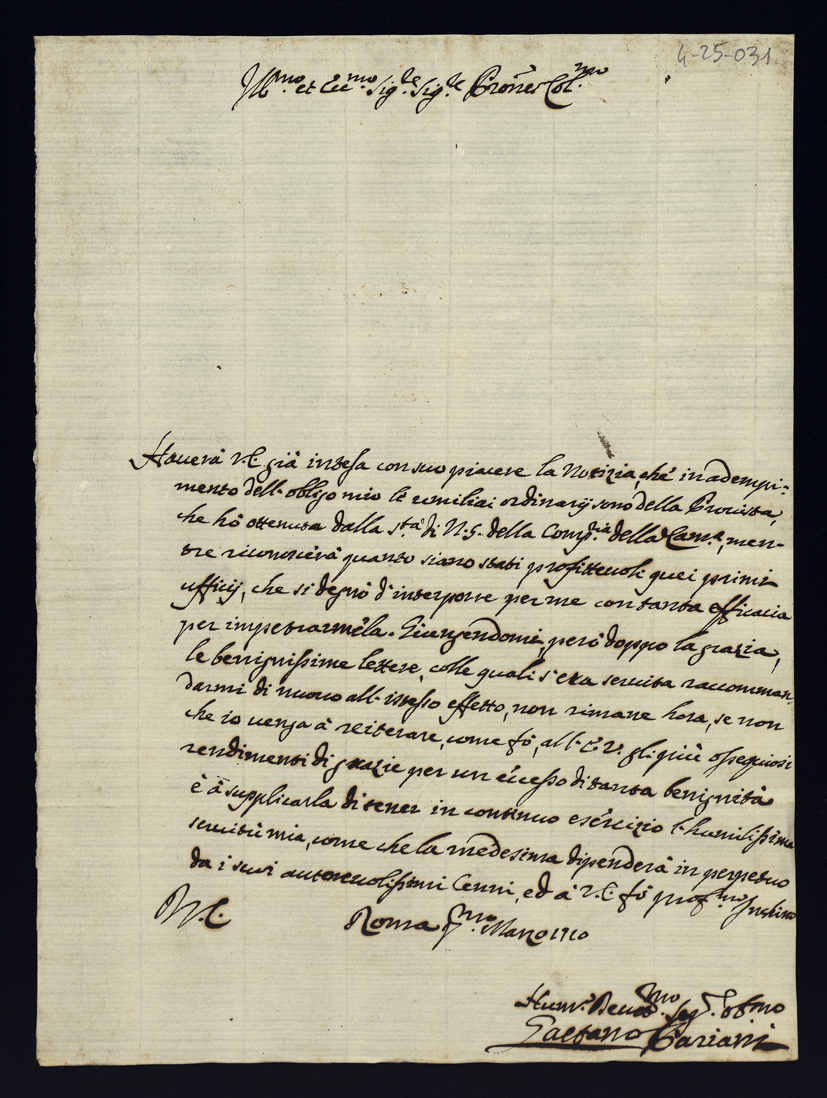 4-25-031
Ill.mo et Ecc.mo Sig.re Sig.re Pron̄e Col.mo
Haverà V.E. già intesa con suo piacere la Notizia, che in adempi-
mento dell'obligo mio le umiliai ordinarij sono della Provista,
che hò ottenuta dalla S.tà di N.S. della Comp.ia della Cam.a, men-
tre riconoscerà quanto siano stati profittevoli quei primi
ufficij, che si degnò d'interporre per me con tanta efficacia
per impetrarmela. Giungendomi però doppo la grazia,
le benignissime lettere, colle quali s'era servita raccoman-
darmi di nuovo all'istesso effetto, non rimane hora, se non
che io venga à reiterare, come fò, all'E.V. gli più ossequiosi
rendimenti di grazie per un eccesso di tanta benignità
e à supplicarla di tener in continuo esercizio l'humilissima
servitù mia, come che la medesima dipenderà in perpetuo
da i suoi autorevolissimi Cenni, ed à V.E. fò prof.mo Inchino
Roma p.mo Marzo 1710
Hum.o Devot.mo Ser.e Obl.mo
Gaetano